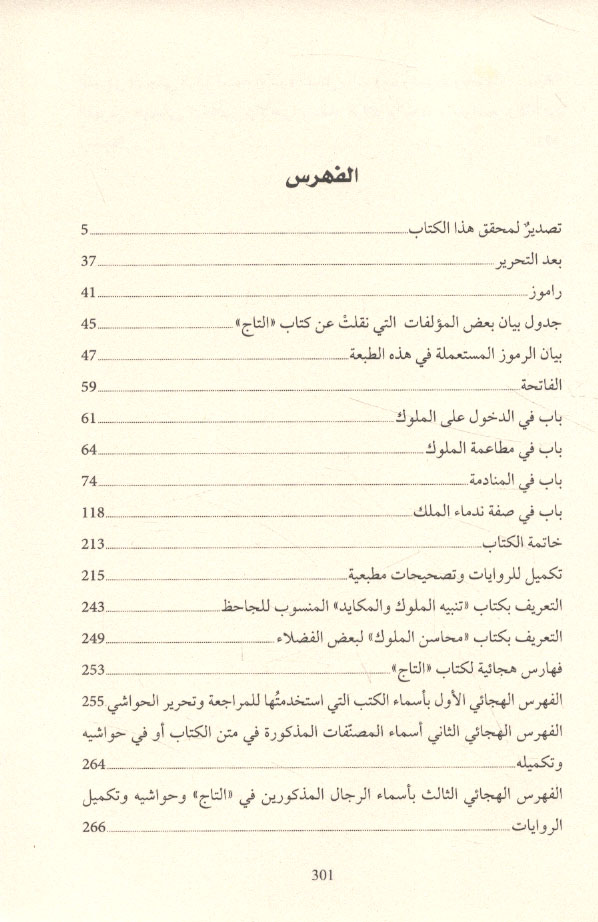 الفهرس
تصديرٌ لمحقق هذا الكتاب 5
بعد التحرير 37
راموز 41
جدول بيان بعض المؤلفات التي نقلتْ عن كتاب «التاج» 45
بيان الرموز المستعملة في هذه الطبعة 47
الفاتحة 59
باب في الدخول على الملوك 61
باب في مطاعمة الملوك 64
باب في المنادمة 74
باب في صفة ندماء الملك 118
خاتمة الكتاب 213
تكميل للروايات وتصحيحات مطبعية 215
التعريف بكتاب «تنبيه الملوك والمكايد» المنسوب للجاحظ 243
التعريف بكتاب «محاسن الملوك» لبعض الفضلاء 249
فهارس هجائية لكتاب «التاج» 253
الفهرس الهجائي الأول بأسماء الكتب التي استخدمتُها للمراجعة وتحرير الحواشي 255
الفهرس الهجائي الثاني أسماء المصنّفات المذكورة في متن الكتاب أو في حواشيه
وتكميله 264
الفهرس الهجائي الثالث بأسماء الرجال المذكورين في «التاج» وحواشيه وتكميل
الروايات 266
301